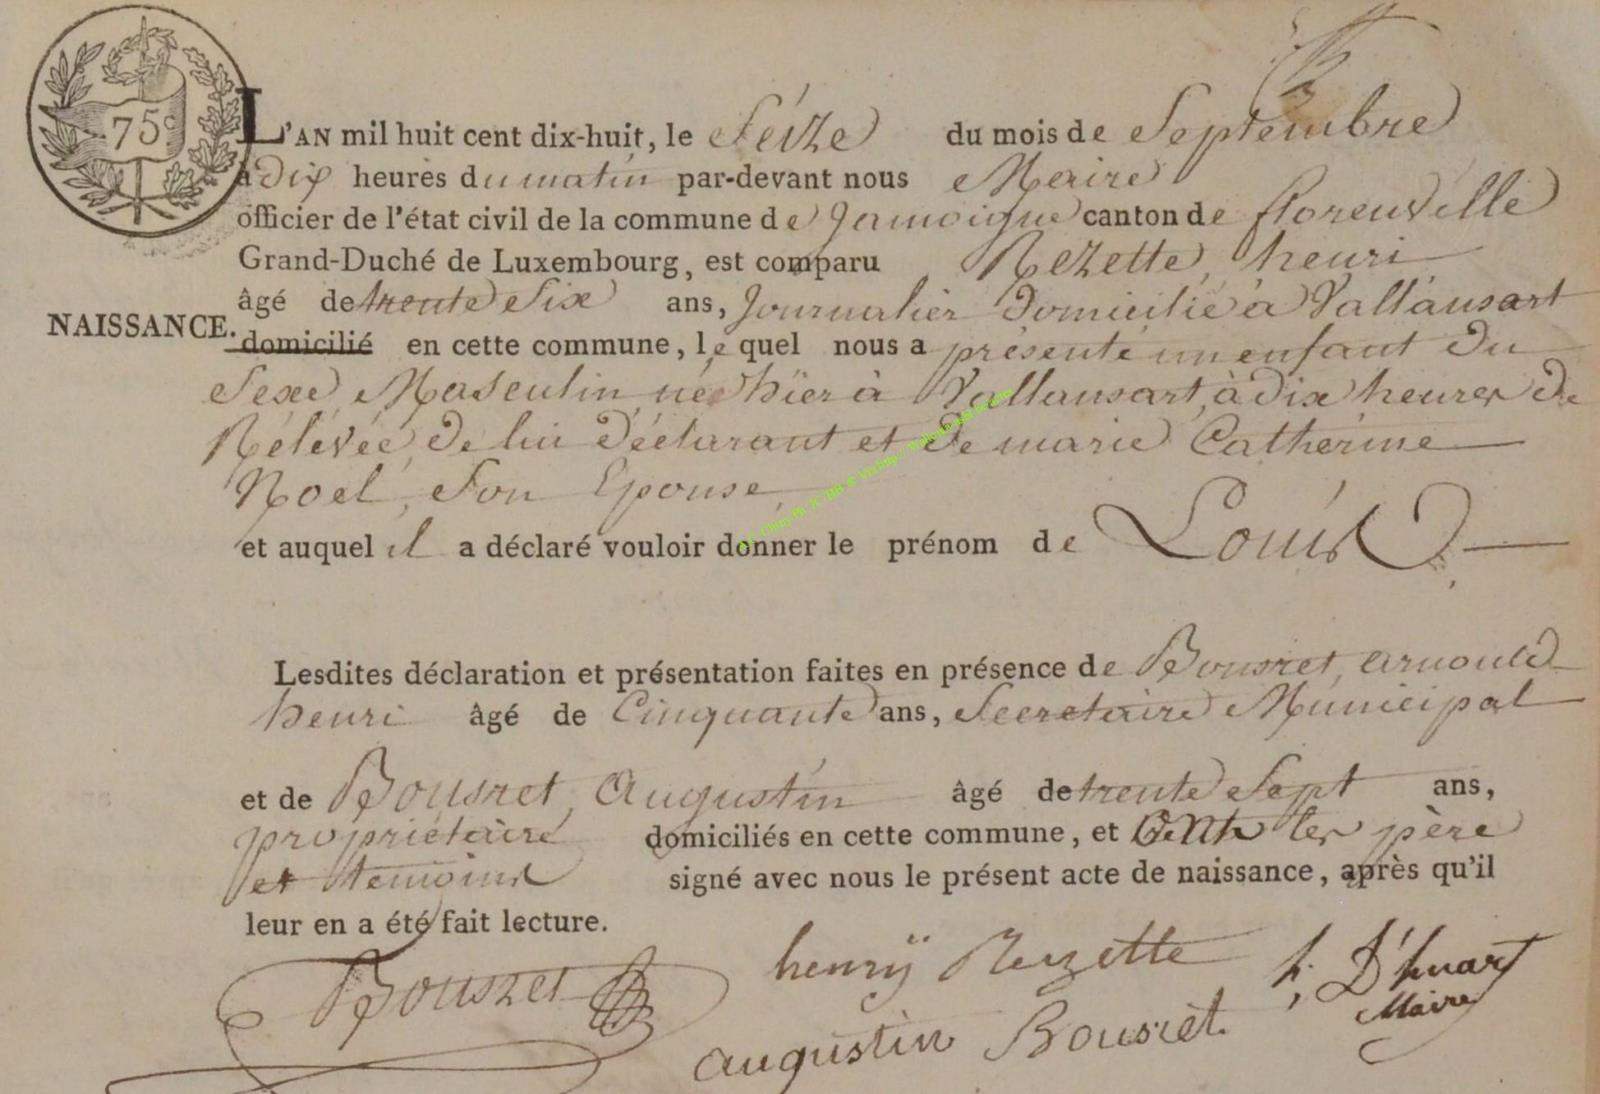 75c
L'AN mil huit cent dix-huit, le Séize du mois de Septembre
à dix heures du matin par-devant nous Maire
officier de l'état civil de la commune de Jamoigne canton de florenville
Grand-Duché de Luxembourg, est comparu Rezette, henri
âgé de trente Six ans, Journalier Domicilié à Vallansart
NAISSANCE. domicilié en cette commune, le quel nous a présenté un enfant du
Sexe Masculin né hïer à Vallansart, à dix heures de
Rélévée, de lui Déclarant et de marie Catherine
Noel, Son Epouse,
et auquel il a déclaré vouloir donner le prénom de Louis
Lesdites déclaration et présentation faites en présence de Bousret, arnould
henri âgé de Cinquante ans, Secretaire Municipal
et de Bousret, Augustin âgé de trente Sept ans,
propriétaire domiciliés en cette commune, et ont les père
et temoins signé avec nous le présent acte de naissance, après qu'il
leur en a été fait lecture.
Bousret henrÿ Rezette h. D'huart
Maire
augustin Bousret